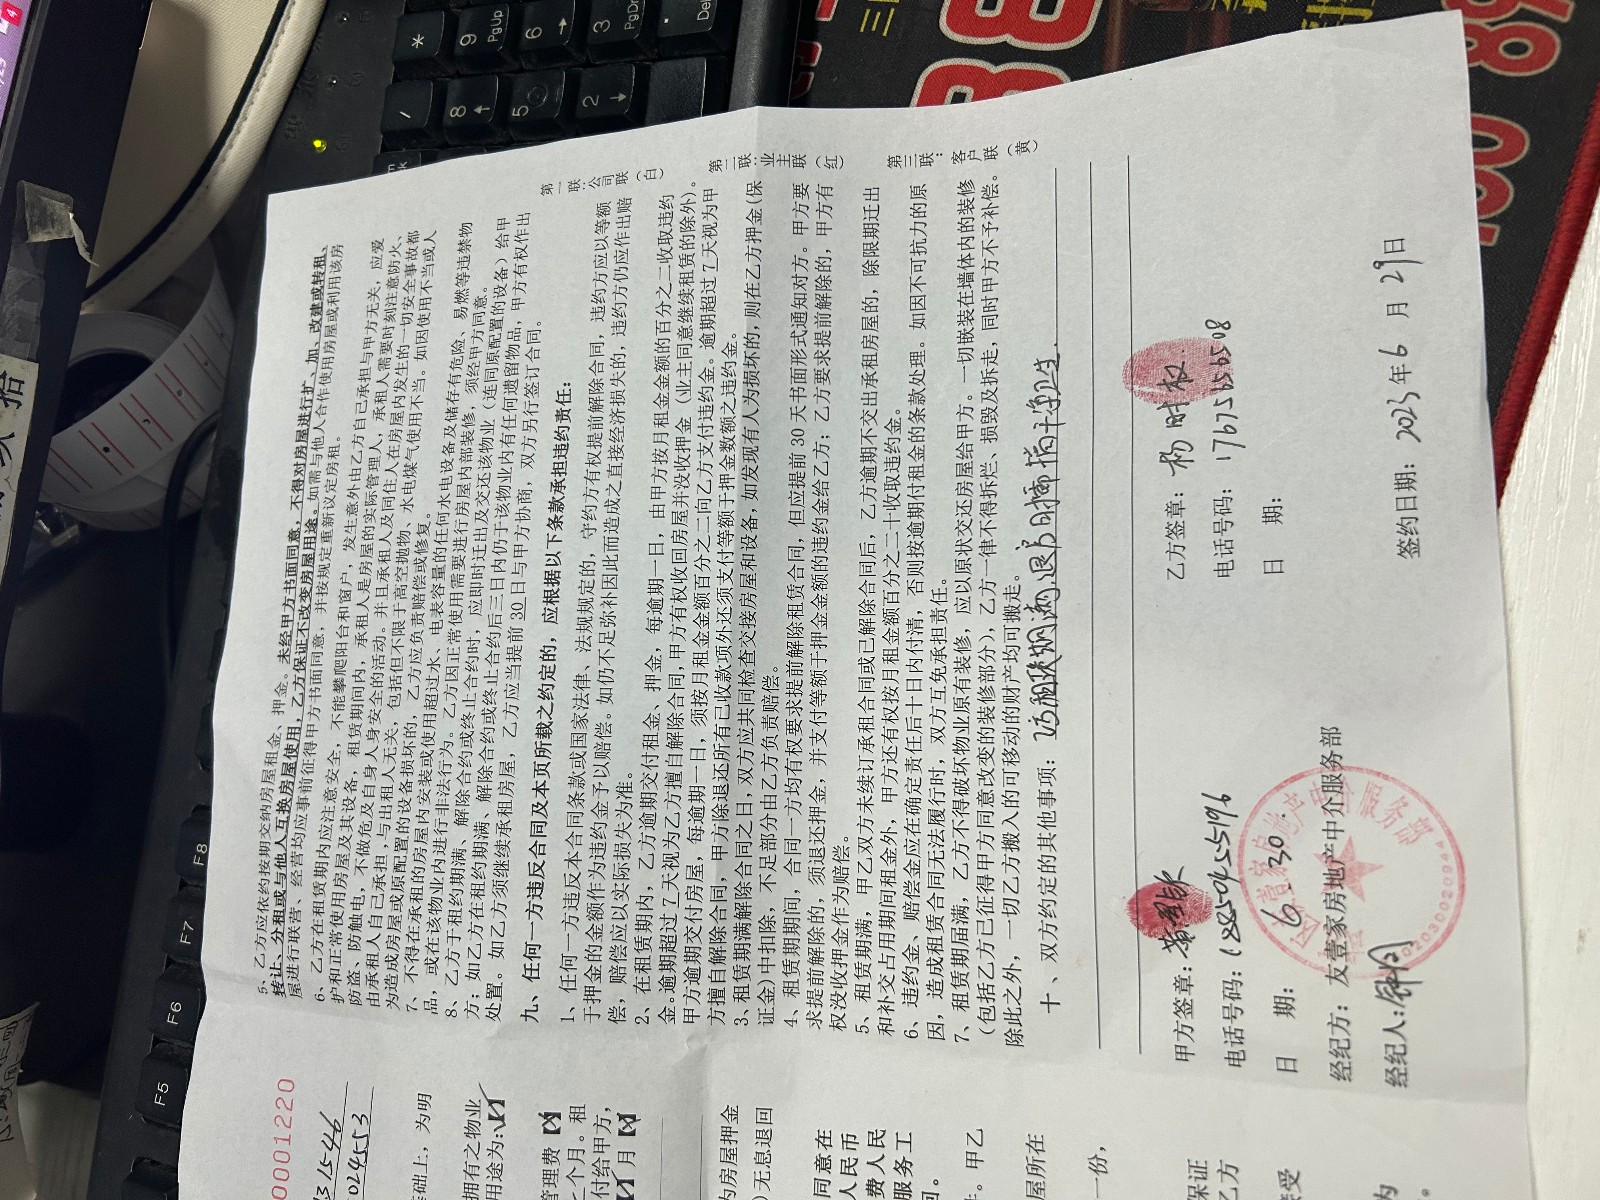 5、乙方应依约按期交纳房屋租金、押金。未经甲方书面同意，不得对房屋进行扩、加、改建或转租、
转让、分租或与他人互换房屋使用，乙方保证不改变房屋用途。如需与他人合作使用房屋或利用该房
屋进行联营、经营均应事前征得甲方书面同意，并按规定重新议定房租。
6、乙方在租赁期内应注意安全，不能攀爬阳台和窗户，发生意外由乙方自己承担与甲方无关，应爱
护和正常使用房屋及其设备，租赁期间内，承租人是房屋的实际管理人，承租人需要时刻注意防火、
防盗、防触电，不做危及自身人身安全的活动。并且承租人及同住人在房屋内发生的一切安全事故都
由承租人自己承担，与出租人无关，包括但不限于高空抛物、水电煤气使用不当。如因使用不当或人
为造成房屋或原配置的设备损坏的，乙方应负责赔偿或修复。
7、不得在承租的房屋内安装或使用超过水、电表容量的任何水电设备及储存有危险、易燃等违禁物
品，或在该物业内进行非法行为。乙方因正常使用需要进行房屋内部装修，须经甲方同意。
8、乙方于租约期满、解除合约或终止合约时，应即时迁出及交还该物业（连同原配置的设备）给甲
方；如乙方在租约期满、解除合约或终止合约后三日内仍于该物业内有任何遗留物品，甲方有权作出
处置。如乙方须继续承租房屋，乙方应当提前30日与甲方协商，双方另行签订合同。
九、任何一方违反合同及本页所载之约定的，应根据以下条款承担违约责任：
1、任何一方违反本合同条款或国家法律、法规规定的，守约方有权提前解除合同，违约方应以等额
于押金的金额作为违约金予以赔偿。如仍不足弥补因此而造成之直接经济损失的，违约方仍应作出赔
偿，赔偿应以实际损失为准。
2、在租赁期内，乙方逾期交付租金、押金，每逾期一日，由甲方按月租金金额的百分之二收取违约
金。逾期超过7天视为乙方擅自解除合同，甲方有权收回房屋并没收押金（业主同意继续租赁的除外）。
甲方逾期交付房屋，每逾期一日，须按月租金金额百分之二向乙方支付违约金。逾期超过7天视为甲
方擅自解除合同，甲方除退还所有已收款项外还须支付等额于押金数额之违约金。
3、租赁期满解除合同之日，双方应共同检查交接房屋和设备，如发现有人为损坏的，则在乙方押金(保
证金)中扣除，不足部分由乙方负责赔偿。
4、租赁期期间，合同一方均有权要求提前解除租赁合同，但应提前30天书面形式通知对方。甲方要
求提前解除的，须退还押金，并支付等额于押金金额的违约金给乙方；乙方要求提前解除的，甲方有
权没收押金作为赔偿。
5、租赁期满，甲乙双方未续订承租合同或已解除合同后，乙方逾期不交出承租房屋的，除限期迁出
和补交占用期间租金外，甲方还有权按月租金额百分之二十收取违约金。
6、违约金、赔偿金应在确定责任后十日内付清，否则按逾期付租金的条款处理。如因不可抗力的原
因，造成租赁合同无法履行时，双方互免承担责任。
7、租赁期届满，乙方不得破坏物业原有装修，应以原状交还房屋给甲方。一切嵌装在墙体内的装修
（包括乙方已征得甲方同意改变的装修部分），乙方一律不得拆烂、损毁及拆走，同时甲方不予补偿。
除此之外，一切乙方搬入的可移动的财产均可搬走。
十、双方约定的其他事项：
期满退房时搞干净卫生.
第一联：公司联（白）
第二联：业主联（红）
第三联：客户联（黄）
甲方签章：
乙方签章：杨时权
电话号码：18850455196
电话号码：17675255508
日 期：6.30.
日 期：
经纪方：友壹家房地产中介服务部
经纪人：
签约日期：2025年6月29日
4420300020994
0001220
1315446
024553
基础上，为明
拥有之物业
用途为：
管理费
个月。租
付给甲方，
月
为房屋押金
）无息退回
同意在
人民币
费人民
服务工
甲乙
屋所在
一份，
保证
乙方
接受
F5
F6
F7
F8
*
/
9
PgUp
8
6
5
3
PgDn
2
.
Del
4